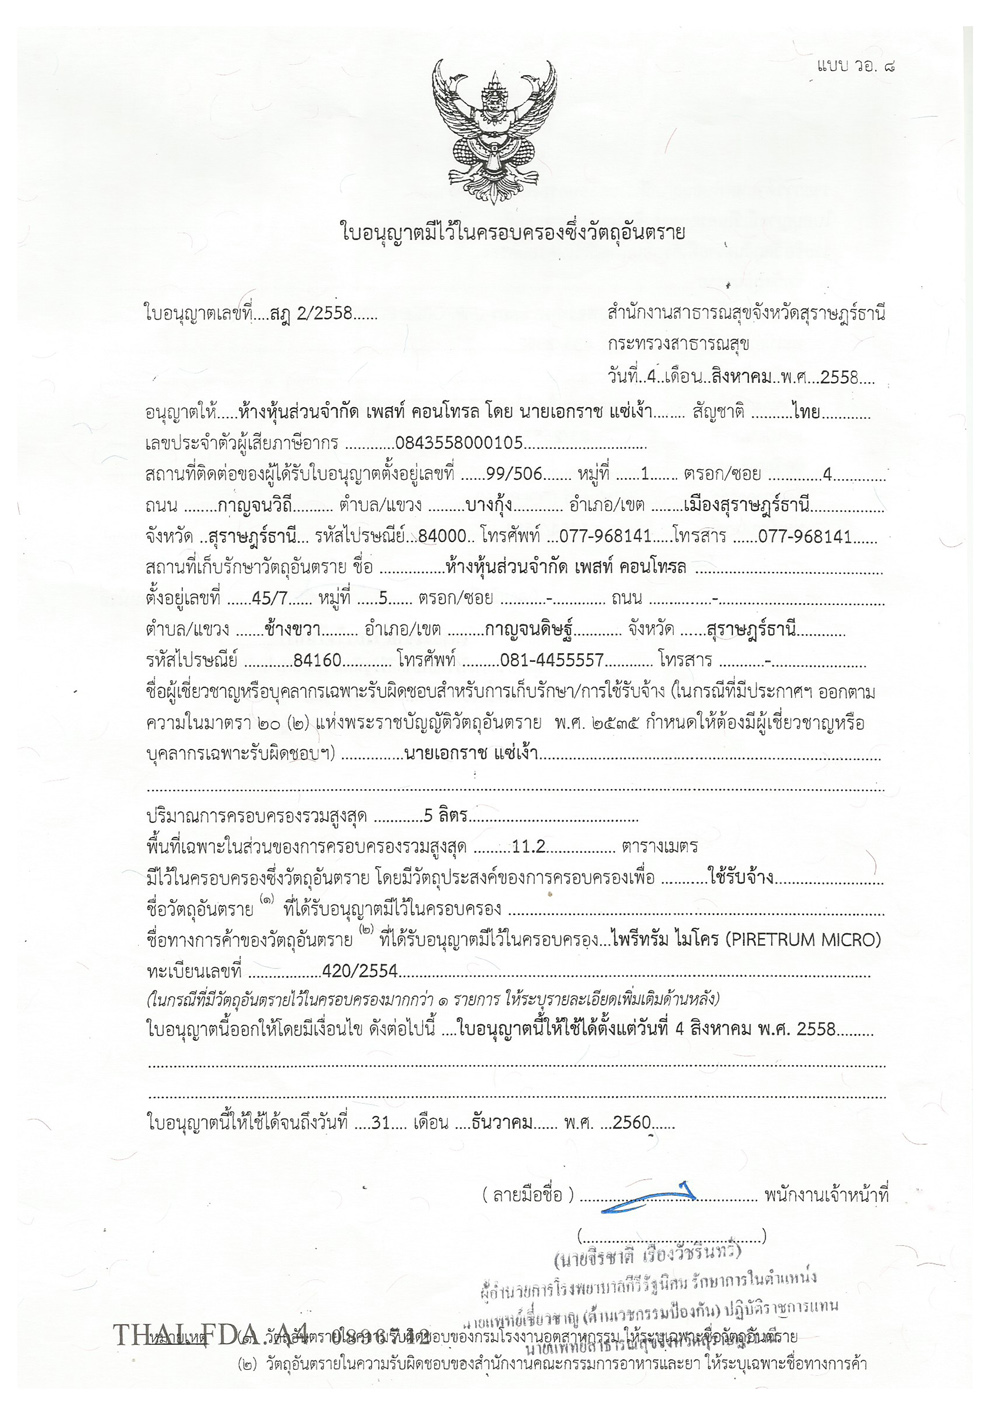 แบบ วอ. ๘
ใบอนุญาตมีไว้ในครอบครองซึ่งวัตถุอันตราย
ใบอนุญาตเลขที่....สฎ 2/2558......
สำนักงานสาธารณสุขจังหวัดสุราษฎร์ธานี
กระทรวงสาธารณสุข
วันที่..4..เดือน..สิงหาคม..พ.ศ...2558....
อนุญาตให้.....ห้างหุ้นส่วนจำกัด เพสท์ คอนโทรล โดย นายเอกราช แซ่เง้า........ สัญชาติ ..........ไทย............
เลขประจำตัวผู้เสียภาษีอากร ............0843558000105..............................
สถานที่ติดต่อของผู้ได้รับใบอนุญาตตั้งอยู่เลขที่ ......99/506....... หมู่ที่ ......1....... ตรอก/ซอย .............4.............
ถนน ........กาญจนวิถี.......... ตำบล/แขวง .........บางกุ้ง............ อำเภอ/เขต ........เมืองสุราษฎร์ธานี..................
จังหวัด ..สุราษฎร์ธานี... รหัสไปรษณีย์...84000.. โทรศัพท์ ...077-968141.....โทรสาร ......077-968141......
สถานที่เก็บรักษาวัตถุอันตราย ชื่อ ................ห้างหุ้นส่วนจำกัด เพสท์ คอนโทรล .............................................
ตั้งอยู่เลขที่ ......45/7...... หมู่ที่ .....5...... ตรอก/ซอย ...........-............. ถนน ...............-........................................
ตำบล/แขวง .......ช้างขวา......... อำเภอ/เขต .........กาญจนดิษฐ์............ จังหวัด ......สุราษฎร์ธานี............
รหัสไปรษณีย์ ............84160............ โทรศัพท์ .........081-4455557............ โทรสาร ...........-.......................
ชื่อผู้เชี่ยวชาญหรือบุคลากรเฉพาะรับผิดชอบสำหรับการเก็บรักษา/การใช้รับจ้าง (ในกรณีที่มีประกาศฯ ออกตาม
ความในมาตรา ๒๐ (๒) แห่งพระราชบัญญัติวัตถุอันตราย พ.ศ. ๒๕๓๕ กำหนดให้ต้องมีผู้เชี่ยวชาญหรือ
บุคลากรเฉพาะรับผิดชอบฯ) ...............นายเอกราช แซ่เง้า..................................................................................
ปริมาณการครอบครองรวมสูงสุด ............5 ลิตร.........................................
พื้นที่เฉพาะในส่วนของการครอบครองรวมสูงสุด .........11.2................. ตารางเมตร
มีไว้ในครอบครองซึ่งวัตถุอันตราย โดยมีวัตถุประสงค์ของการครอบครองเพื่อ ...........ใช้รับจ้าง..........................
ชื่อวัตถุอันตราย (๑) ที่ได้รับอนุญาตมีไว้ในครอบครอง ..........................................................................................
ชื่อทางการค้าของวัตถุอันตราย (๒) ที่ได้รับอนุญาตมีไว้ในครอบครอง...ไพรีทรัม ไมโคร (PIRETRUM MICRO)
ทะเบียนเลขที่ ..................420/2554..................................................................................................................
(ในกรณีที่มีวัตถุอันตรายไว้ในครอบครองมากกว่า ๑ รายการ ให้ระบุรายละเอียดเพิ่มเติมด้านหลัง)
ใบอนุญาตนี้ออกให้โดยมีเงื่อนไข ดังต่อไปนี้ ....ใบอนุญาตนี้ให้ใช้ได้ตั้งแต่วันที่ 4 สิงหาคม พ.ศ. 2558.........
ใบอนุญาตนี้ให้ใช้ได้จนถึงวันที่ ....31.... เดือน ....ธันวาคม...... พ.ศ. ...2560......
( ลายมือชื่อ ) ........................................... พนักงานเจ้าหน้าที่
(...........................................)
(นายจิรชาติ เรืองวัชรินทร์)
ผู้อำนวยการโรงพยาบาลคีรีรัฐนิคม รักษาการในตำแหน่ง
นายแพทย์เชี่ยวชาญ (ด้านเวชกรรมป้องกัน) ปฏิบัติราชการแทน
นายแพทย์สาธารณสุขจังหวัดสุราษฎร์ธานี
THAI FDA. A4 0896742
หมายเหตุ (๑) วัตถุอันตรายในความรับผิดชอบของกรมโรงงานอุตสาหกรรม ให้ระบุเฉพาะชื่อวัตถุอันตราย
(๒) วัตถุอันตรายในความรับผิดชอบของสำนักงานคณะกรรมการอาหารและยา ให้ระบุเฉพาะชื่อทางการค้า